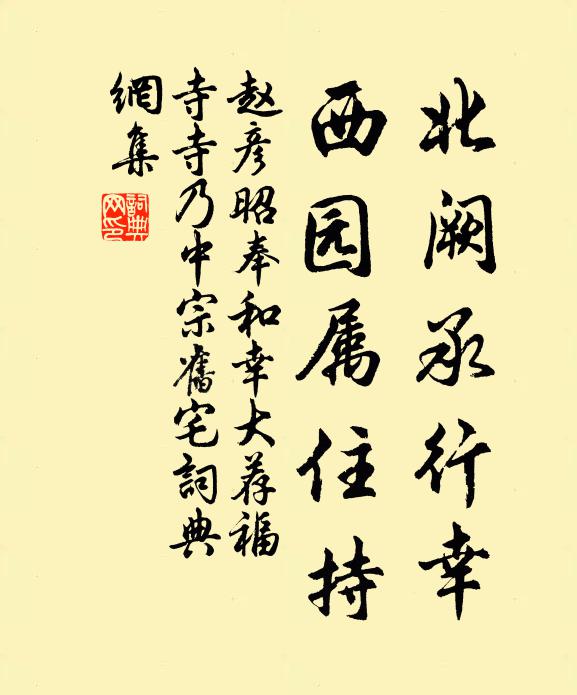 北阙承行幸
西园属住持
赵彦昭奉和幸大荐福
寺寺乃中宗旧宅词典
網集
詞典網印